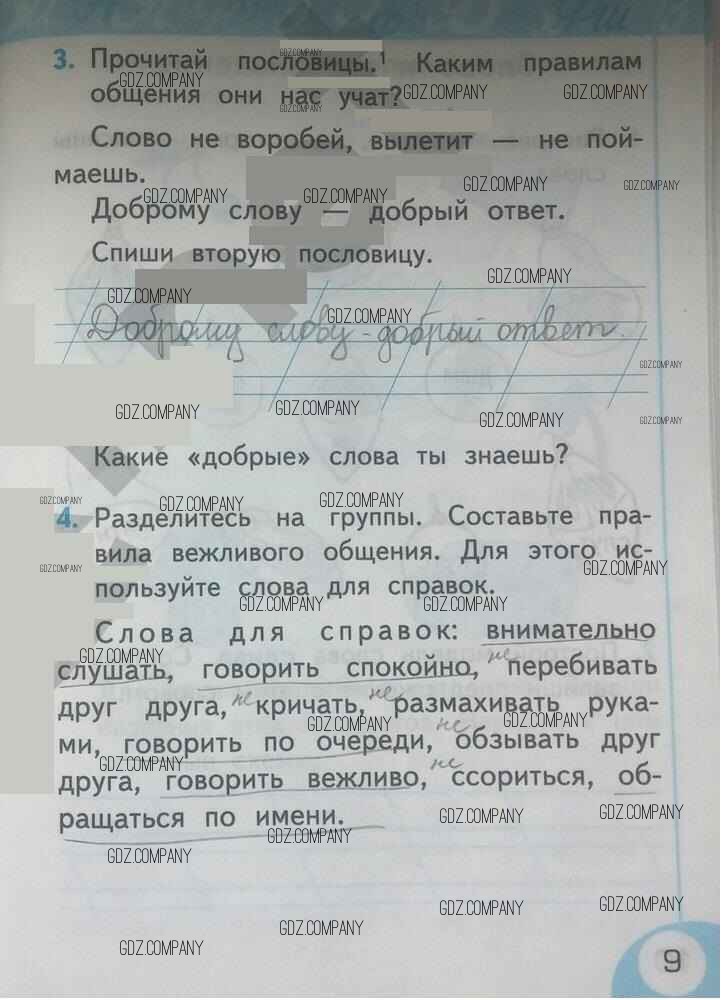 3. Прочитай пословицы.¹ Каким правилам
общения они нас учат?
Слово не воробей, вылетит — не пой-
маешь.
Доброму слову — добрый ответ.
Спиши вторую пословицу.
Доброму слову - добрый ответ.
Какие «добрые» слова ты знаешь?
4. Разделитесь на группы. Составьте пра-
вила вежливого общения. Для этого ис-
пользуйте слова для справок.
Слова для справок: внимательно
слушать, говорить спокойно, не перебивать
друг друга, не кричать, не размахивать рука-
ми, говорить по очереди, не обзывать друг
друга, говорить вежливо, не ссориться, об-
ращаться по имени.
9
GDZ.COMPANY